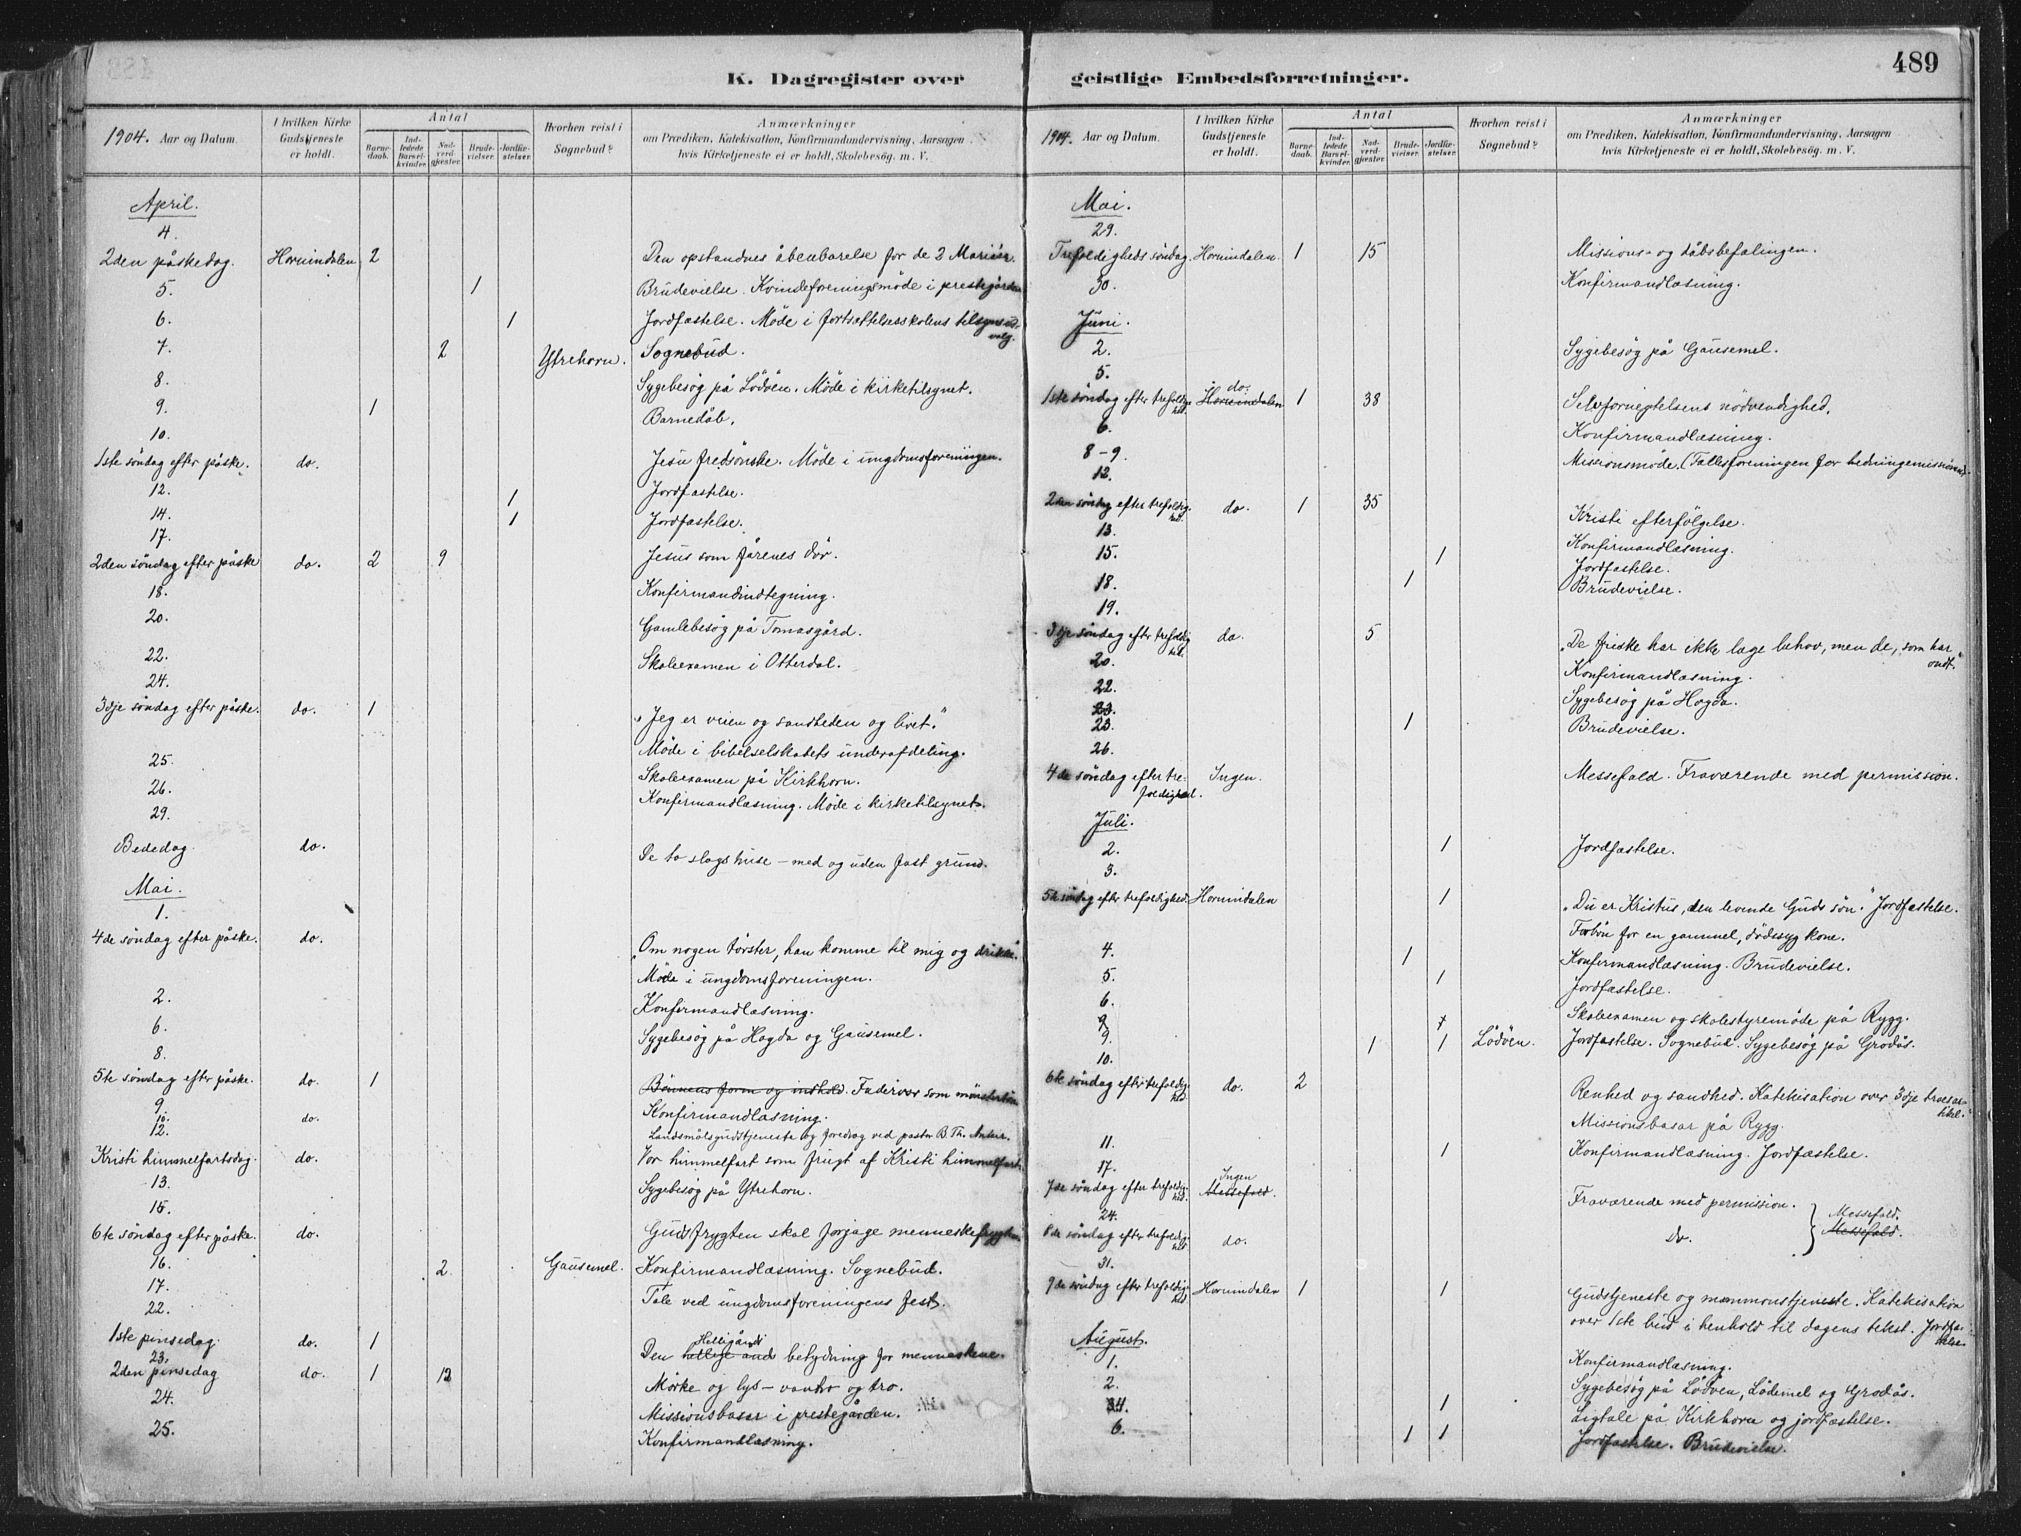 K. Dagregister over geistlige Embedsforretninger.
489
1904. Aar og Datum.
I hvilken Kirke Gudstjeneste er holdt.
Antal
Barnedaab.
Indledede Barselkvinder.
Nadverdgjester.
Brudevielser.
Jordfæstelser.
Hvorhen reist i Sognebud?
Anmærkninger
om Prædiken, Katekisation, Konfirmandundervisning, Aarsagen
hvis Kirketjeneste ei er holdt, Skolebesøg. m. V.
April.
4.
2den påskedag. Hornindalen 2 Den opstandnes åbenbarelse for de 2 Mariaer.
5. 1 Brudevielse. Kvindeforeningsmøde i prestegården
6. 1 Jordfæstelse. Møde i fortsættelsesskolens tilsynsudvalg.
7. 2 Ytrehorn. Sognebud.
8. Sygebesøg på Lødøen. Møde i kirketilsynet.
9. 1 Barnedåb.
10.
1ste søndag efter påske. do. Jesu fredsønske. Møde i ungdomsforeningen.
12. 1 Jordfæstelse.
14. 1 Jordfæstelse.
17.
2den søndag efter påske do. 2 9 Jesus som fårenes dør.
18. Konfirmandindtegning.
20. Gamlebesøg på Tomasgård.
22. Skoleexamen i Otterdal.
24.
3dje søndag efter påske. do. 1 "Jeg er veien og sandheden og livet."
Møde i bibelselskabets underafdeling.
25. Skoleexamen på Kirkhorn.
26. Konfirmandlæsning. Møde i kirketilsynet.
29.
Bededag do. De to slags huse – med og uden fast grund.
Mai.
1.
4de søndag efter påske. do. "Om nogen tørster, han komme til mig og drikke."
Møde i ungdomsforeningen.
2. Konfirmandlæsning.
6. Sygebesøg på Hagda og Gausemel.
8.
5te søndag efter påske. do. 1 Bønnens form og indhold. Fadervor som mønsterbøn
9. Konfirmandlæsning.
10. do. Landsmålsgudstjeneste og foredrag ved pastor B. Th. Anker.
12.
Kristi himmelfartsdag. do. Vor himmelfart som frugt af Kristi himmelfart.
13. Sygebesøg på Ytrehorn.
15.
6te søndag efter påske. do. Gudsfrygten skal forjage menneskefrygten.
16. 2 Gausemel. Konfirmandlæsning. Sognebud.
17. Tale ved ungdomsforeningens fest.
22.
1ste pinsedag. do. 1 Den hellige ånd Helligånds betydning for menneskene.
23.
2den pinsedag do. 1 12 Mørke og lys – vantro og tro.
24. Missionsbasar i prestegården.
25. Konfirmandlæsning.
1904. Aar og Datum.
I hvilken Kirke Gudstjeneste er holdt.
Antal
Barnedaab.
Indledede Barselkvinder.
Nadverdgjester.
Brudevielser.
Jordfæstelser.
Hvorhen reist i Sognebud?
Anmærkninger
om Prædiken, Katekisation, Konfirmandundervisning, Aarsagen
hvis Kirketjeneste ei er holdt, Skolebesøg. m. V.
Mai.
29.
Trefoldigheds søndag. Hornindalen. 1 15 Missions- og dåbsbefalingen.
30. Konfirmandlæsning.
Juni.
2. Sygebesøg på Gausemel.
5.
1ste søndag efter trefoldighed. Hornindalen do. 1 38 Selvfornegtelsens nødvendighed.
6. Konfirmandlæsning.
8–9. Missionsmøde. (Fællesforeningen for hedningemissionen).
12.
2den søndag efter trefoldighed. do. 1 35 Kristi efterfølgelse.
13. Konfirmandlæsning.
15. 1 Jordfæstelse.
18. 1 Brudevielse.
19.
3dje søndag efter trefoldighed. do. 5 "De friske har ikke læge behov, men de, som har ondt."
20. Konfirmandlæsning.
22. Sygebesøg på Hagda.
23.
23. 1 Brudevielse.
26.
4de søndag efter trefoldighed. Ingen. Messefald. Fraværende med permission.
Juli.
2. 1 Jordfæstelse.
3.
5te søndag efter trefoldighed. Hornindalen 1 "Du er Kristus, den levende Guds søn." Jordfæstelse.
Forbøn for en gammel, dødssyg kone.
4. 1 Konfirmandlæsning. Brudevielse.
5. 1 Jordfæstelse.
6. Skoleexamen og skolestyremøde på Rygg.
9.
9. 1 1 Lødøen. Jordfæstelse. Sognebud. Sygebesøg på Grodås.
10.
6te søndag efter trefoldighed do. 2 Renhed og sandhed. Katekisation over 3dje trosartikel.
Missionsbasar på Rygg.
11. 1 Konfirmandlæsning. Jordfæstelse.
17.
7de søndag efter trefoldighed. Ingen Messefald. Fraværende med permission. } Messefald. Messefald.
24.
8de søndag efter trefoldighed do. do.
31.
9de søndag efter trefoldighed Hornindalen 1 1 Gudstjeneste og mammonstjeneste. Katekisation
over 1ste bud i henhold til dagens tekst. Jordfæstelse.
August.
1. Konfirmandlæsning.
2. Sygebesøg på Lødøen, Lødemel og Grodås.
4. 1 Ligtale på Kirkhorn og jordfæstelse.
6. 1 1 Jordfæstelse. Brudevielse.